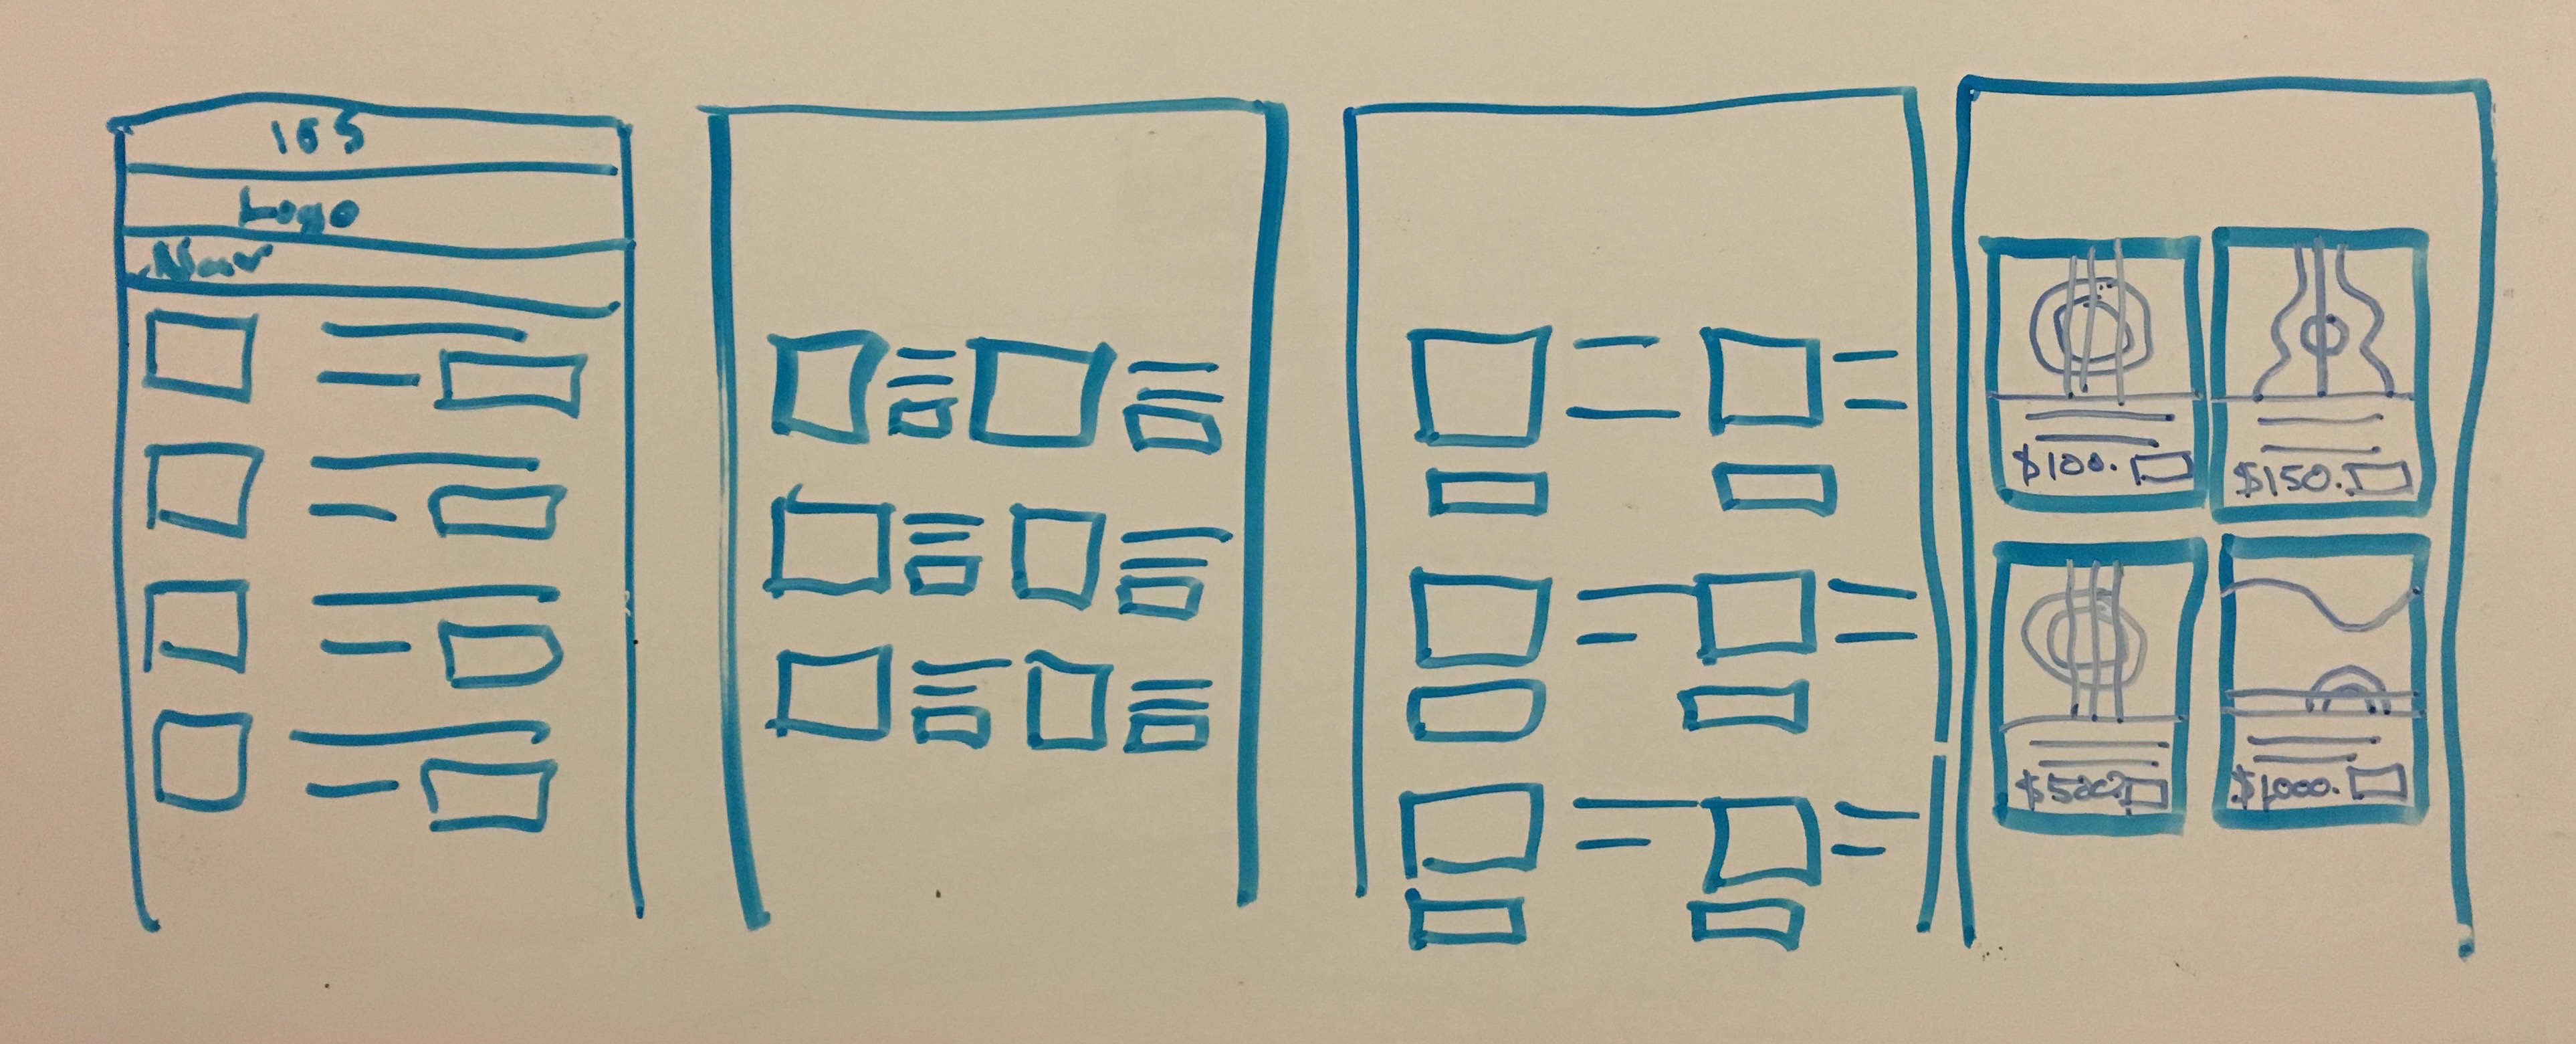 iOS
Logo
Nav
$100.
$150.
$1000.